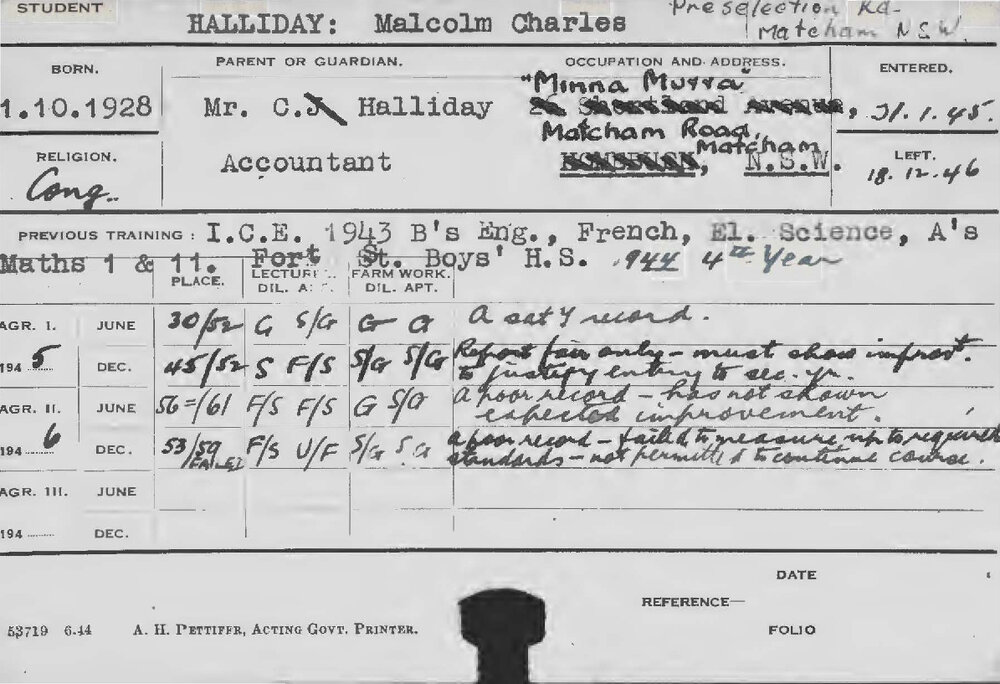 STUDENT
HALLIDAY: Malcolm Charles
Preselection Rd.
Matcham N.S.W.
BORN.
PARENT OR GUARDIAN.
OCCUPATION AND ADDRESS.
ENTERED.
1.10.1928
Mr. C.J. Halliday
"Minna Murra"
31.1.45.
Matcham Road,
RELIGION.
Accountant
Matcham
N.S.W.
LEFT.
Cong.
18.12.46
PREVIOUS TRAINING: I.C.E. 1943 B's Eng., French, El. Science, A's
Maths 1 & 11. Fort St. Boys' H.S. 1944 4th Year
PLACE.
LECTURE
DIL. A
FARM WORK.
DIL. APT.
AGR. I. JUNE 30/52 G S/G G G A sat'y record.
1945 DEC. 45/52 S F/S S/G S/G Report fair only - must show improvt.
to justify entry to sec. yr.
AGR. II. JUNE 56=/61 F/S F/S G S/G A poor record - has not shown
expected improvement.
1946 DEC. 53/59 F/S U/F S/G S G A poor record - failed to measure up to required
FAILED standards - not permitted to continue course.
AGR. III. JUNE
194 DEC.
DATE
REFERENCE—
FOLIO
53719 6.44 A. H. PETTIFER, ACTING GOVT. PRINTER.